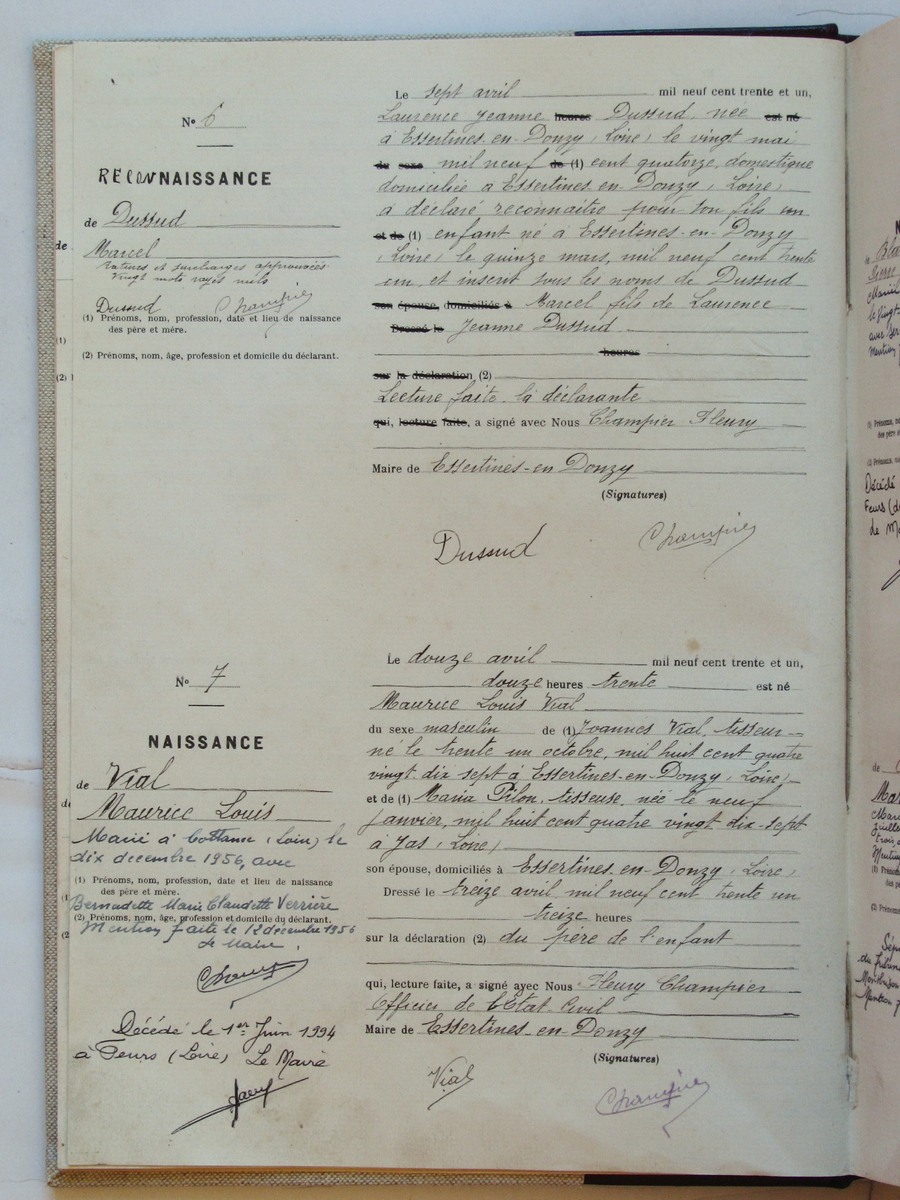 Nº 6
RECONNAISSANCE
de Dussud
Marcel
Ratures et surcharges approuvées
Vingt mots rayés nuls
Dussud Champier
(1) Prénoms, nom, profession, date et lieu de naissance
des père et mère.
(2) Prénoms, nom, âge, profession et domicile du déclarant.
Le sept avril mil neuf cent trente et un,
Laurence Jeanne heures Dussud, née est né
à Essertines-en-Donzy (Loire) le vingt mai
du sexe mil neuf de (1) cent quatorze, domestique
domiciliée à Essertines-en-Donzy (Loire)
a déclaré reconnaître pour son fils un
et de (1) enfant né à Essertines-en-Donzy
(Loire) le quinze mars, mil neuf cent trente
un, et inscrit sous les noms de Dussud
son épouse, domiciliés à Marcel fils de Laurence
Dressé le Jeanne Dussud
heures
sur la déclaration (2)
Lecture faite, la déclarante
qui, lecture faite, a signé avec Nous Champier Fleury
Maire de Essertines-en-Donzy
(Signatures)
Dussud Champier
Nº 7
NAISSANCE
de Vial
Maurice Louis
Marié à Cottance (Loire) le
dix decembre 1956, avec
(1) Prénoms, nom, profession, date et lieu de naissance
des père et mère.
Bernadette Marie Claudette Verrière
(2) Prénoms, nom, âge, profession et domicile du déclarant.
Mention faite le 12 décembre 1956
Le Maire,
Décédé le 1er Juin 1994
à Feurs (Loire) Le Maire
Le douze avril mil neuf cent trente et un,
douze heures trente est né
Maurice Louis Vial
du sexe masculin de (1) Joannes Vial, tisseur
né le trente un octobre, mil huit cent quatre
vingt dix sept à Essertines-en-Donzy (Loire)
et de (1) Maria Pilon, tisseuse, née le neuf
janvier, mil huit cent quatre vingt dix-sept
à Jas (Loire)
son épouse, domiciliés à Essertines-en-Donzy (Loire)
Dressé le treize avril mil neuf cent trente un
treize heures
sur la déclaration (2) du père de l'enfant
qui, lecture faite, a signé avec Nous Fleury Champier
Officier de l'Etat-Civil
Maire de Essertines-en-Donzy
(Signatures)
Vial Champier